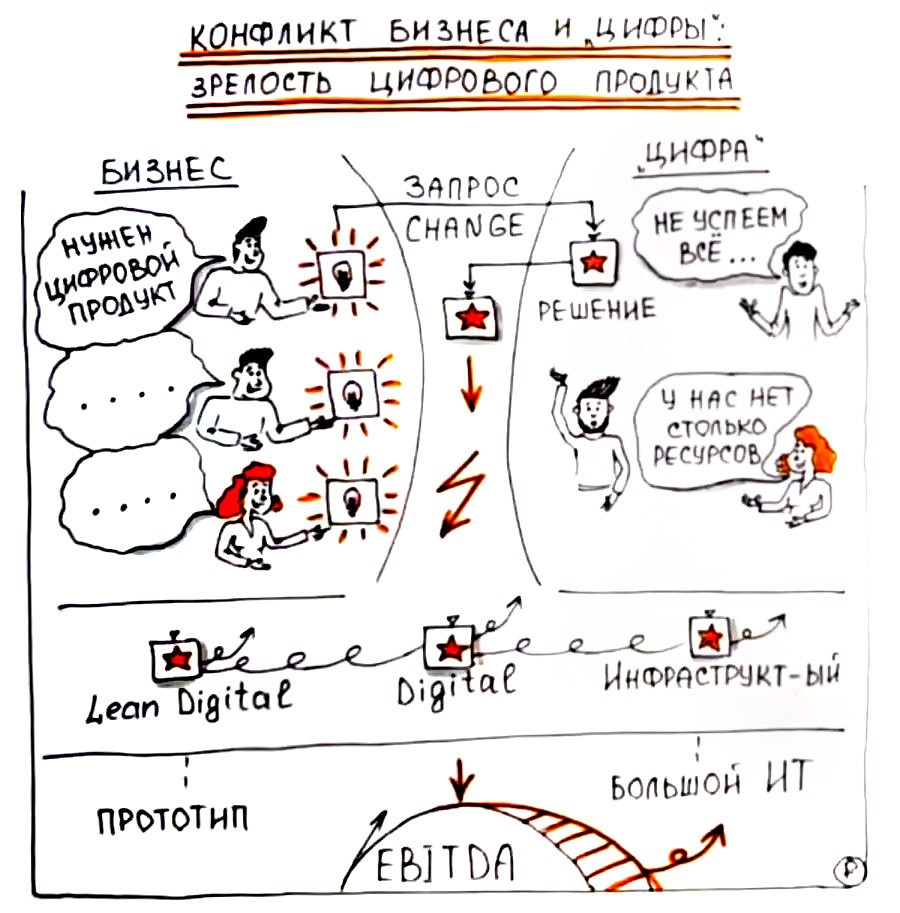 КОНФЛИКТ БИЗНЕСА И „ЦИФРЫ“:
ЗРЕЛОСТЬ ЦИФРОВОГО ПРОДУКТА
БИЗНЕС
НУЖЕН
ЦИФРОВОЙ
ПРОДУКТ
. . . .
. . . .
ЗАПРОС
CHANGE
„ЦИФРА“
НЕ УСПЕЕМ
ВСЁ ...
РЕШЕНИЕ
У НАС НЕТ
СТОЛЬКО
РЕСУРСОВ
Lean Digital
Digital
ИНФРАСТРУКТ-ЫЙ
ПРОТОТИП
БОЛЬШОЙ ИТ
EBITDA